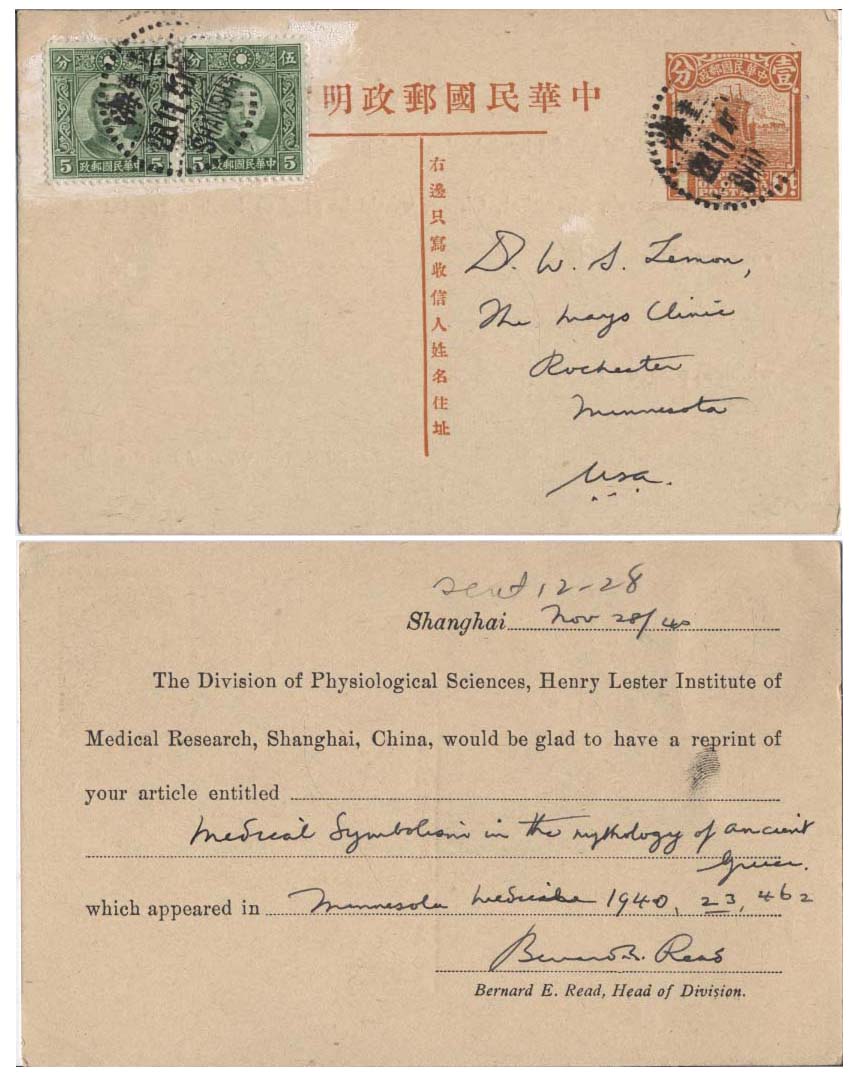 伍 分 伍 分
5 中華民國郵政 5
5 中華民國郵政 5
中華民國郵政明
中華民國郵政
壹 分
上海
SHANGHAI
右邊只寫收信人姓名住址
D. W. S. Lemon,
The Mayo Clinic
Rochester
Minnesota
USA.
sent 12-28
Shanghai Nov 28/40
The Division of Physiological Sciences, Henry Lester Institute of
Medical Research, Shanghai, China, would be glad to have a reprint of
your article entitled
Medical Symbolism in the mythology of ancient
Greece.
which appeared in Minnesota Medicine 1940, 23, 462
Bernard E. Read
Bernard E. Read, Head of Division.